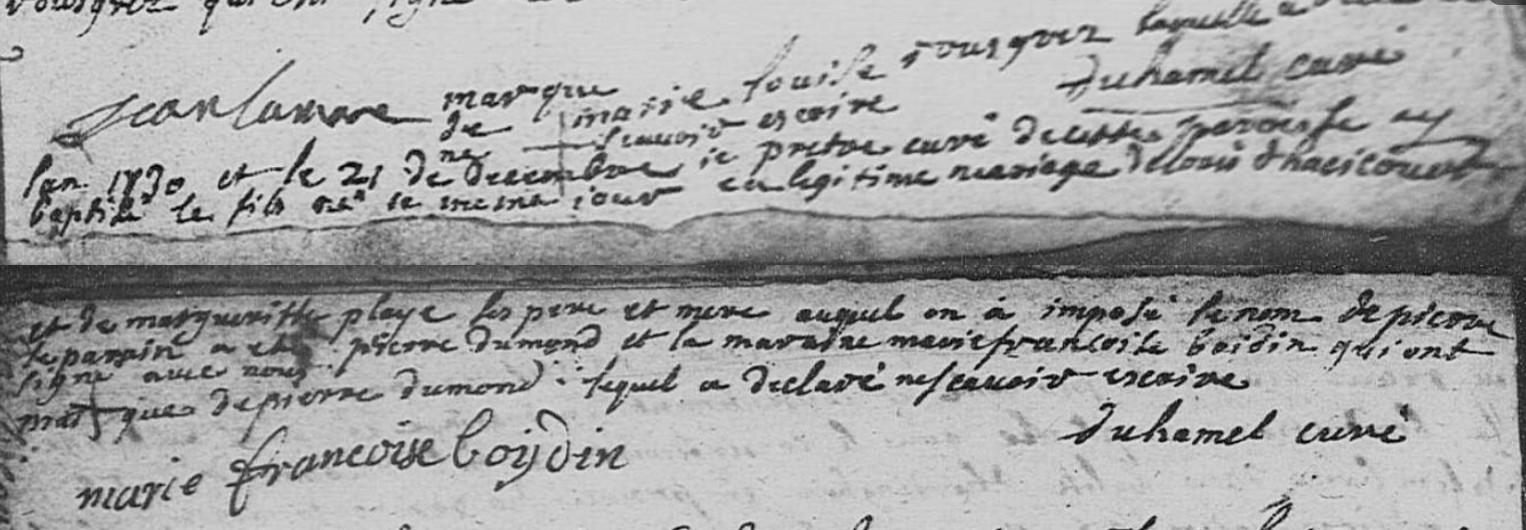 vousgrez qui ont signé
Jean lamare marque de marie louise vousgrez laquelle a
ne scauoir escrire
duhamel curé
lan 1730 et le 21 de decembre ie pretre curé de cette paroisse ay
baptisé le fils né le mesme iour en legitime mariage de louis dhaei
et de margueritte playe ses pere et mere auquel on à imposé le nom de pierre
le parain a eté pierre dumond et la maraine marie francoise boidin qui ont
signé auec nous
marque de pierre dumond lequel a declaré ne scauoir escrire
duhamel curé
marie francoise boijdin